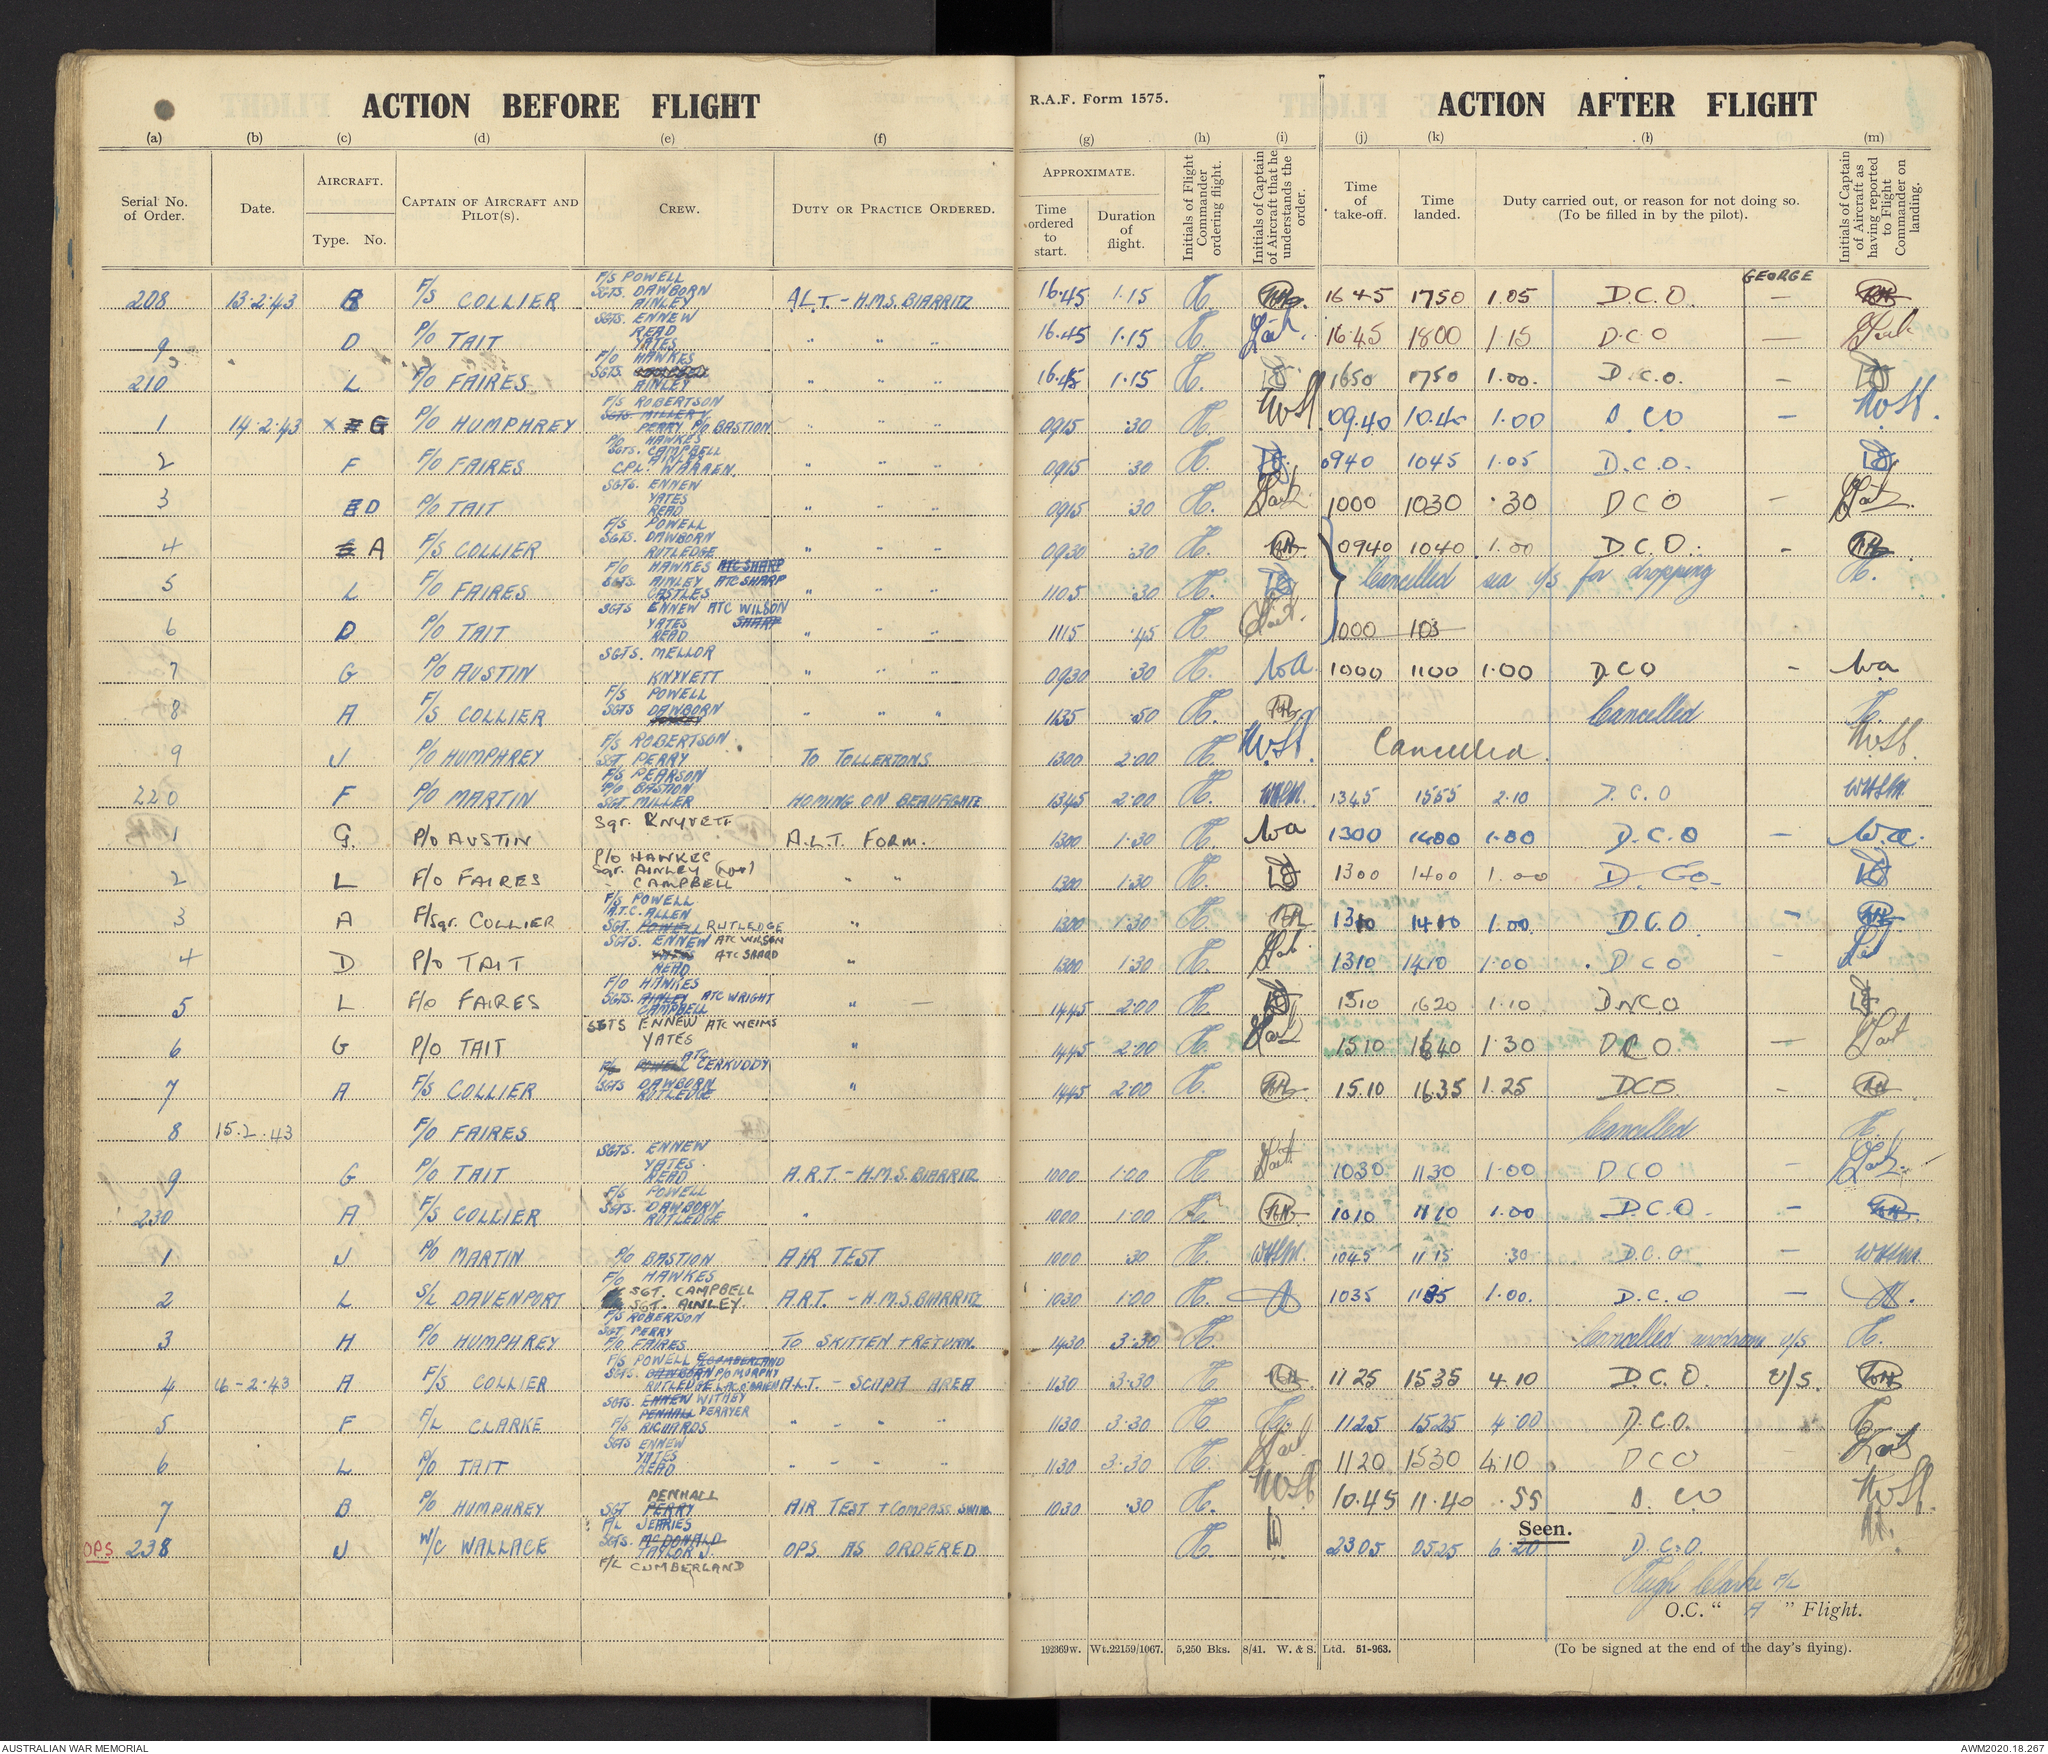 ACTION BEFORE FLIGHT
R.A.F. Form 1575.
ACTION AFTER FLIGHT
(a) (b) (c) (d) (e) (f) (g) (h) (i) (j) (k) (l) (m)
Serial No. of Order.
Date.
AIRCRAFT.
Type. No.
CAPTAIN OF AIRCRAFT AND PILOT(S).
CREW.
DUTY OR PRACTICE ORDERED.
APPROXIMATE.
Time ordered to start.
Duration of flight.
Initials of Flight Commander ordering flight.
Initials of Captain of Aircraft that he understands the order.
Time of take-off.
Time landed.
Duty carried out, or reason for not doing so. (To be filled in by the pilot).
Initials of Captain of Aircraft as having reported to Flight Commander on landing.
GEORGE
208 13.2.43 B F/S COLLIER F/S POWELL SGTS. DAWBORN AINLEY A.L.T. - H.M.S. BIARRITZ 16.45 1.15 1645 1750 1.05 D.C.O. —
9 D P/O TAIT SGTS. ENNEW READ YATES " " " 16.45 1.15 16.45 1800 1.15 D.C.O —
210 L F/O FAIRES F/O HAWKES SGTS. AINLEY " " " 16.45 1.15 1650 1750 1.00. D.C.O. —
1 14.2.43 x G P/O HUMPHREY F/S ROBERTSON SGTS. MILLER PERRY P/O BASTION " " " 0915 .30 09.40 10.40 1.00 D.CO —
2 F F/O FAIRES P/O HAWKES SGTS. CAMPBELL AINLEY CPL. WARREN. " " " 0915 .30 0940 1045 1.05 D.C.O.
3 D P/O TAIT SGTS. ENNEW YATES READ " " " 0915 .30 1000 1030 .30 DCO —
4 A F/S COLLIER F/S POWELL SGTS. DAWBORN RUTLEDGE " " " 0930 .30 0940 1040 1.00 D.C.O. -
5 L F/O FAIRES F/O HAWKES ATC SHARP SGTS. AINLEY ATC SHARP CASTLES " " " 1105 .30 Cancelled sea u/s for dropping
6 D P/O TAIT SGTS ENNEW ATC WILSON YATES SHARP READ " " " 1115 .45 1000 103
7 G P/O AUSTIN SGTS. MELLOR KNYVETT " " " 0930 .30 1000 1100 1.00 DCO - wa
8 A F/S COLLIER F/S POWELL SGTS DAWBORN " " " 1135 .50 Cancelled
9 J P/O HUMPHREY F/S ROBERTSON. SGT. PERRY TO TOLLERTONS 1300 2.00 Cancelled.
220 F P/O MARTIN F/S PEARSON P/O BASTION SGT. MILLER HOMING ON BEAUFIGHTE 1345 2.00 1345 1555 2.10 D.C.O
1 G. P/O AUSTIN Sgt. KNYVETT A.L.T. FORM. 1300 1.30 wa 1300 1400 1.00 D.C.O — w.a.
2 L F/O FAIRES P/O HAWKES Sgt. AINLEY - CAMPBELL " " 1300 1.30 1300 1400 1.00
3 A F/Sgt. COLLIER F/S POWELL A.T.C. ALLEN SGT. POWELL RUTLEDGE " 1300 1.30 1310 1410 1.00 D.C.O. —
4 D P/O TAIT SGTS. ENNEW ATC WILSON YATES ATC SHARP READ " 1300 1.30 1310 1410 1.00 DCO -
5 L F/O FAIRES F/O HAWKES SGTS. AINLEY ATC WRIGHT CAMPBELL " — 1445 2.00 1510 1620 1.10 DNCO
6 G P/O TAIT SGTS ENNEW ATC WEIMS YATES " 1445 2.00 1510 1640 1.30 DCO. —
7 A F/S COLLIER ATC CERKUDDY SGTS DAWBORN RUTLEDGE " 1445 2.00 15.10 16.35 1.25 DCO. —
8 15.2.43 F/O FAIRES Cancelled
9 G P/O TAIT SGTS. ENNEW YATES. READ A.R.T. - H.M.S. BIARRITZ 1000 1.00 1030 1130 1.00 DCO -
230 A F/S COLLIER F/S POWELL SGTS. DAWBORN RUTLEDGE " 1000 1.00 1010 1110 1.00 D.C.O. —
1 J P/O MARTIN P/O BASTION AIR TEST 1000 .30 1045 1115 .30 D.C.O —
2 L S/L DAVENPORT F/O HAWKES SGT. CAMPBELL SGT. AINLEY. A.R.T. - H.M.S. BIARRITZ 1030 1.00 1035 1135 1.00. D.C.O —
3 H P/O HUMPHREY F/S ROBERTSON SGT. PERRY F/O FAIRES TO SKITTEN + RETURN. 1430 3.30 Cancelled aerodrome u/s
4 16-2-43 A F/S COLLIER F/S POWELL CUMBERLAND SGTS. DAWBORN P/O MORPHY RUTLEDGE LAC O'BRIEN A.L.T. - SCAPA AREA 1130 3.30 1125 1535 4.10 D.C.O. U/S.
5 F F/L CLARKE SGTS. ENNEW WITHEY PENHALL PERRYER F/S RICHARDS " - " " 1130 3.30 1125 1525 4.00 D.C.O.
6 L P/O TAIT SGTS ENNEW YATES READ " - " " 1130 3.30 1120 1530 4.10 DCO
7 B P/O HUMPHREY PENHALL SGT PERRY AIR TEST + COMPASS SWING 1030 .30 10.45 11.40 .55 D.CO
OPS 238 J W/C WALLACE P/L JERRIES SGTS. McDONALD TAYLOR J. F/L CUMBERLAND OPS. AS ORDERED 2305 0525 6.20 D.C.O.
Seen.
Hugh Clarke F/L
O.C. " A " Flight.
192369w. Wt.22159/1067. 5,250 Bks. 8/41. W. & S. Ltd. 51-963.
(To be signed at the end of the day's flying).
AUSTRALIAN WAR MEMORIAL
AWM2020.18.267